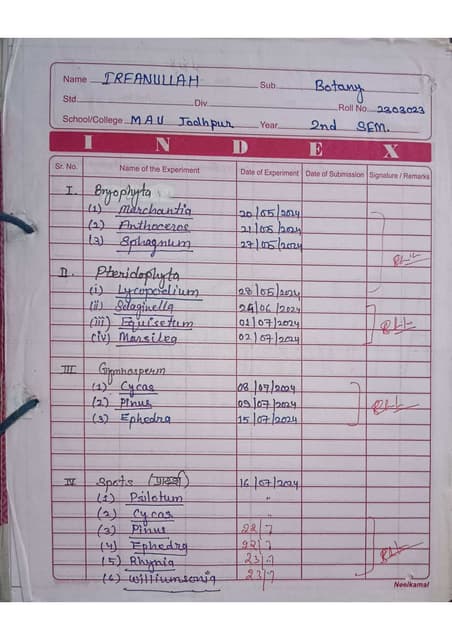 Name IRFANULLAH Sub. Botany
Std. Div. Roll No. 2303023
School/College MAU Jodhpur Year 2nd SEM.
INDEX
Sr. No. Name of the Experiment Date of Experiment Date of Submission Signature / Remarks
I. Bryophyta
(1) Marchantia 20/05/2024
(2) Anthoceros 21/05/2024
(3) Sphagnum 27/05/2024
II. Pteridophyta
(i) Lycopodium 28/05/2024
(ii) Selaginella 24/06/2024
(iii) Equisetum 01/07/2024
(iv) Marsilea 02/07/2024
III Gymnosperm
(1) Cycas 08/07/2024
(2) Pinus 09/07/2024
(3) Ephedra 15/07/2024
IV Spots (प्रादर्श) 16/07/2024
(1) Psilotum "
(2) Cycas "
(3) Pinus 22/7
(4) Ephedra 22/7
(5) Rhynia 23/7
(6) Williumsonia 23/7
Neelkamal